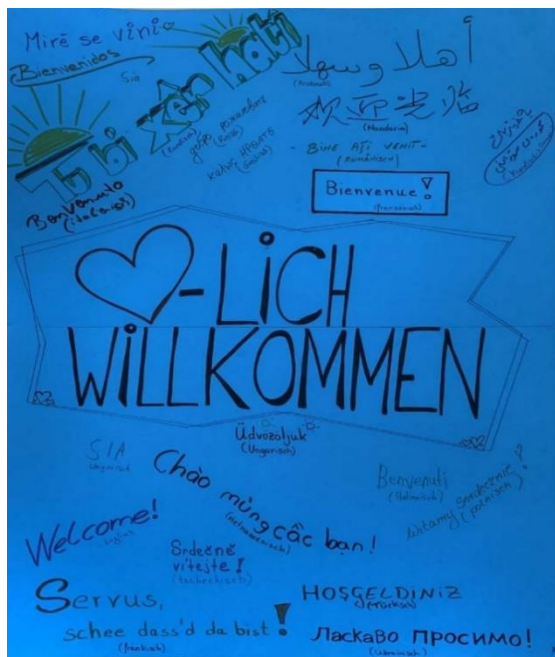 Mirë se vini
Bienvenidos
Sia
Tu bi xêr hatî
(Kurdisch)
أهلا وسهلا
(Arabisch)
欢迎光临
(Mandarin)
- BINE AȚI VENIT -
(RUMÄNISCH)
Bienvenue!
(französisch)
Benvenuto
(italienisch)
♡-LICH
WILLKOMMEN
Üdvözöljük
(Ungarisch)
SIA
Chào mừng các bạn!
(Vietnamesisch)
Benvenuti
(Italienisch)
Witamy serdecznie!
(polnisch)
Welcome!
Srdečně
vítejte!
(tschechisch)
Servus,
schee dass'd da bist!
(fränkisch)
HOŞGELDİNİZ
(türkisch)
Ласкаво просимо!
(Ukrainisch)